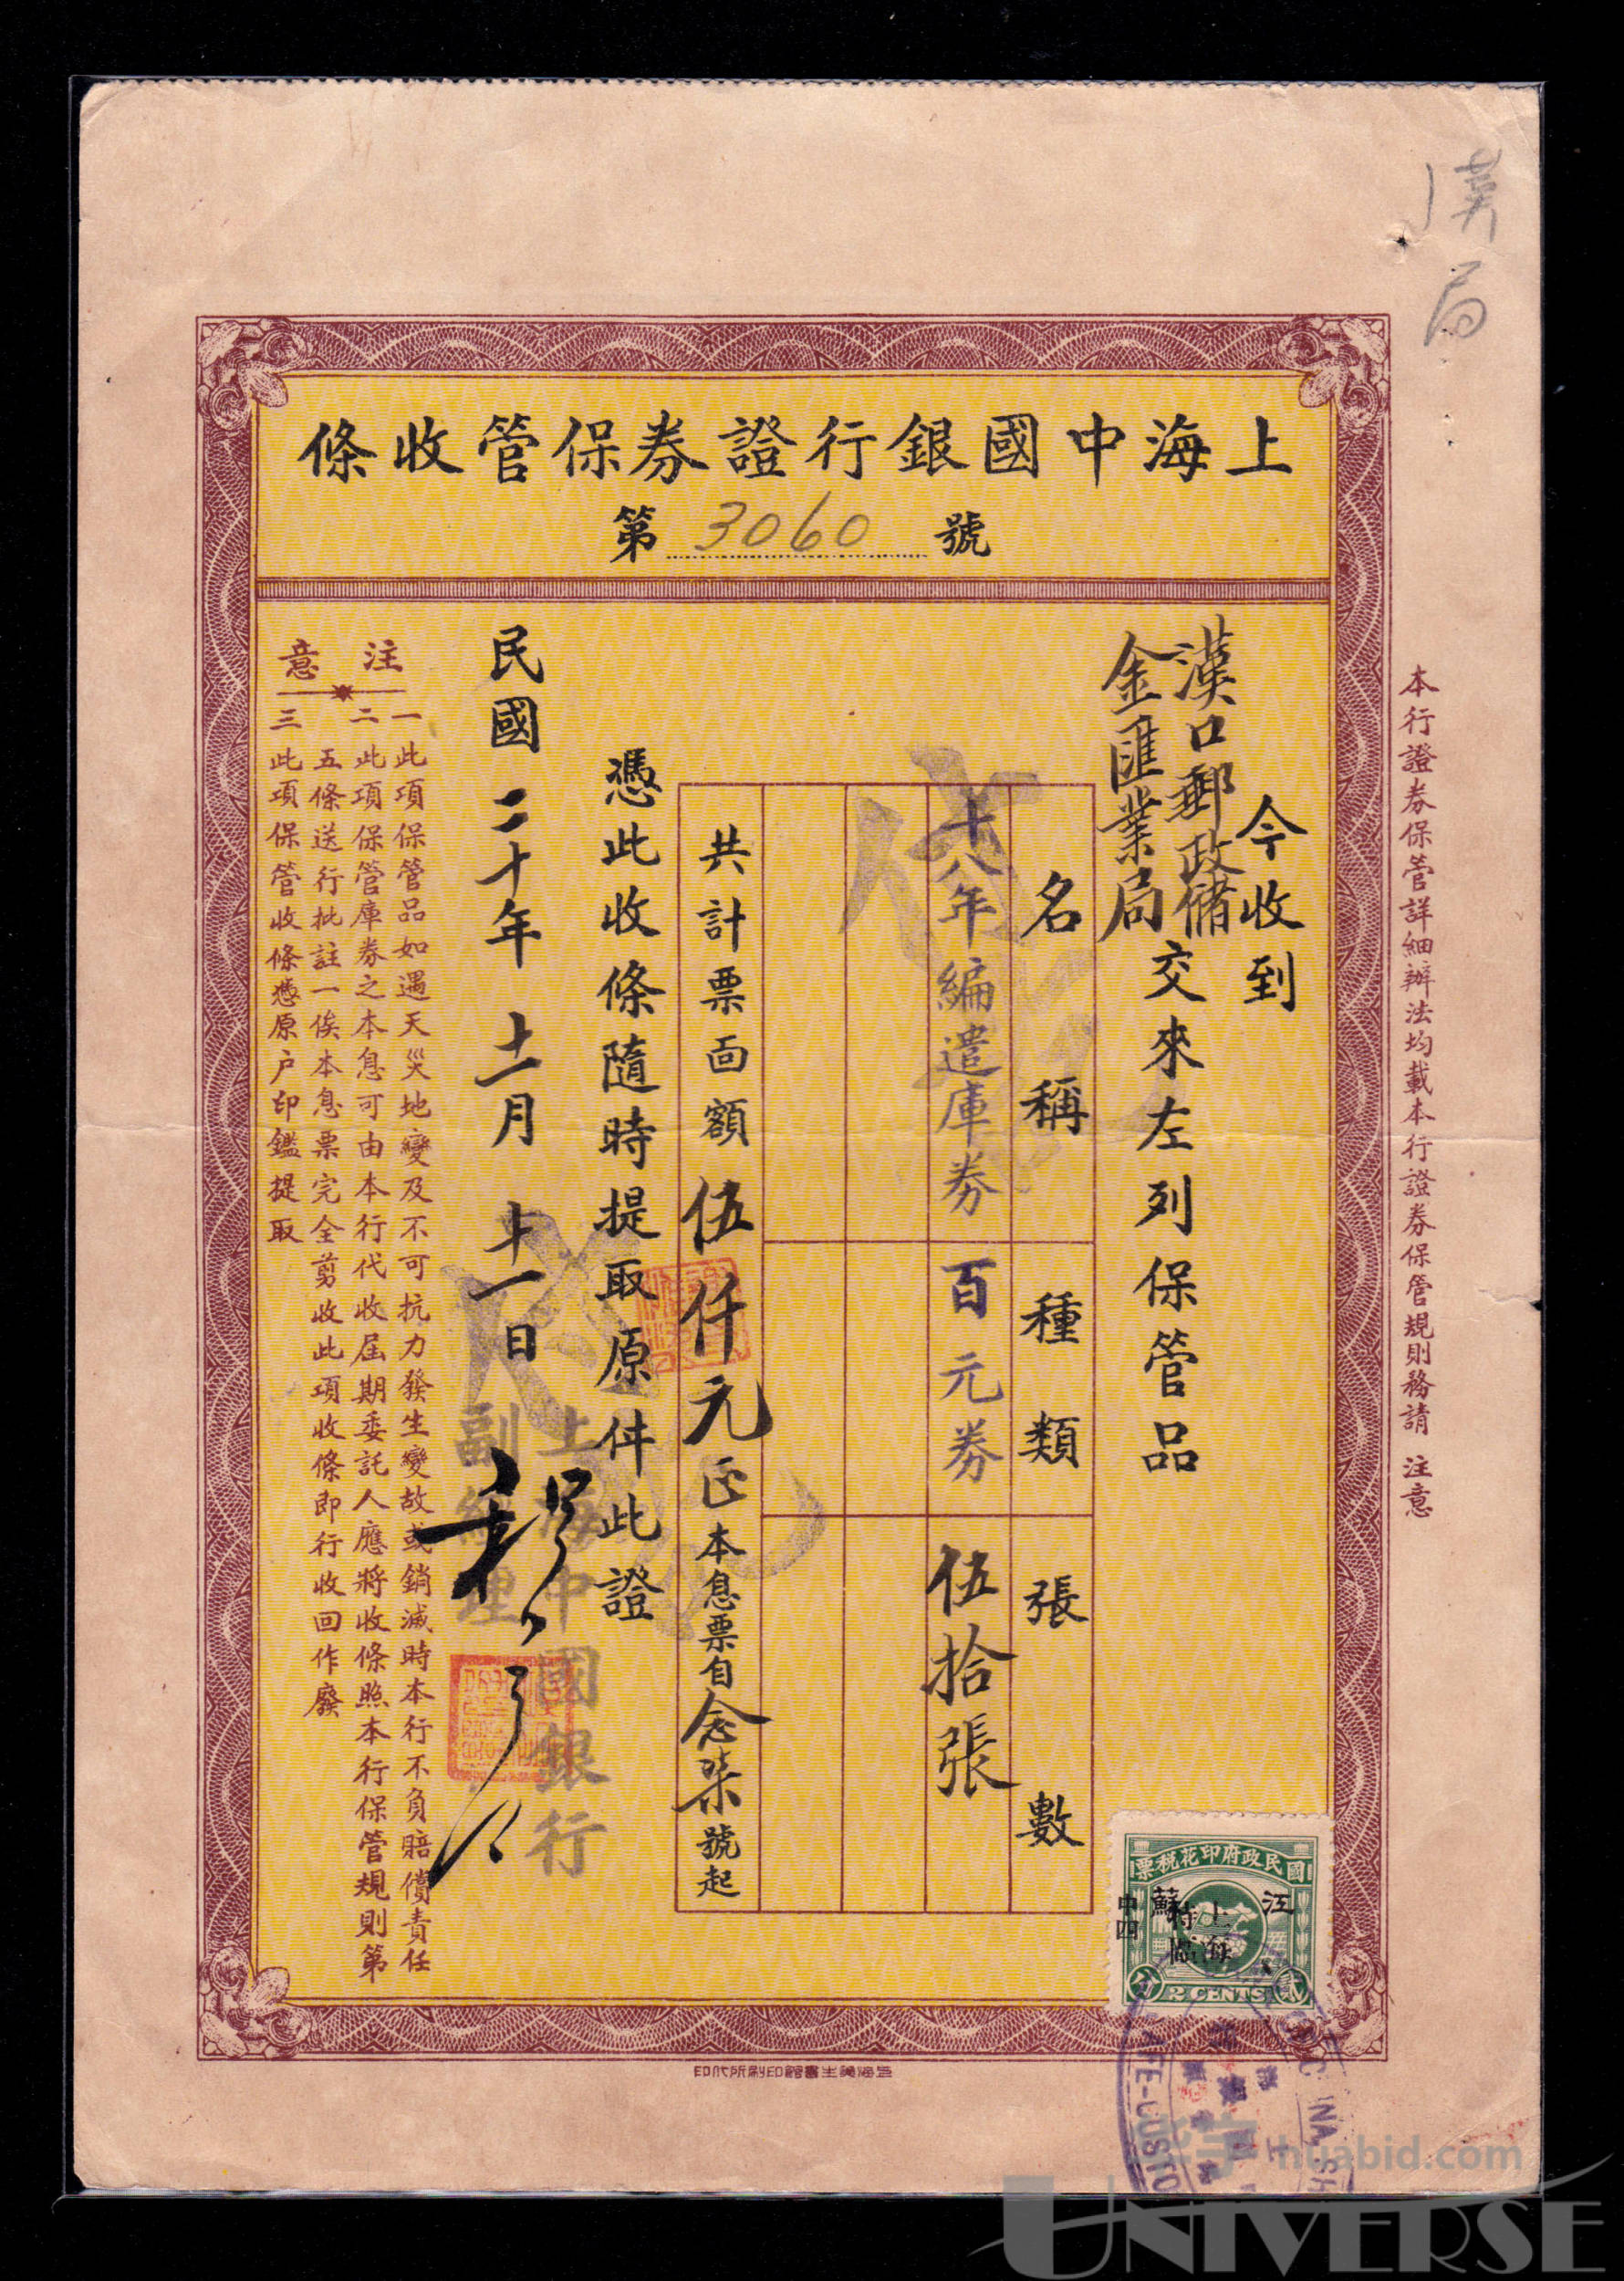 漢局
上海中國銀行證券保管收條
第 3060 號
今收到
漢口郵政儲
金匯業局
交來左列保管品
名稱 種類 張數
十八年編遣庫券 百元券 伍拾張
共計票面額伍仟元正本息票自念柒號起
憑此收條隨時提取原件此證
上海中國銀行
副經理
民國二十年十一月十一日
注意
一 此項保管品如遇天災地變及不可抗力發生變故或銷滅時本行不負賠償責任
二 此項保管庫券之本息可由本行代收屆期委託人應將收條照本行保管規則第
五條送行批註一俟本息票完全剪收此項收條即行收回作廢
三 此項保管收條憑原户印鑑提取
本行證券保管詳細辦法均載本行證券保管規則務請 注意
國民政府印花稅票
江蘇
上海
特
中四
貳分
2 CENTS
上海美生書館印刷所代印
華宇
huabid.com
UNIVERSE